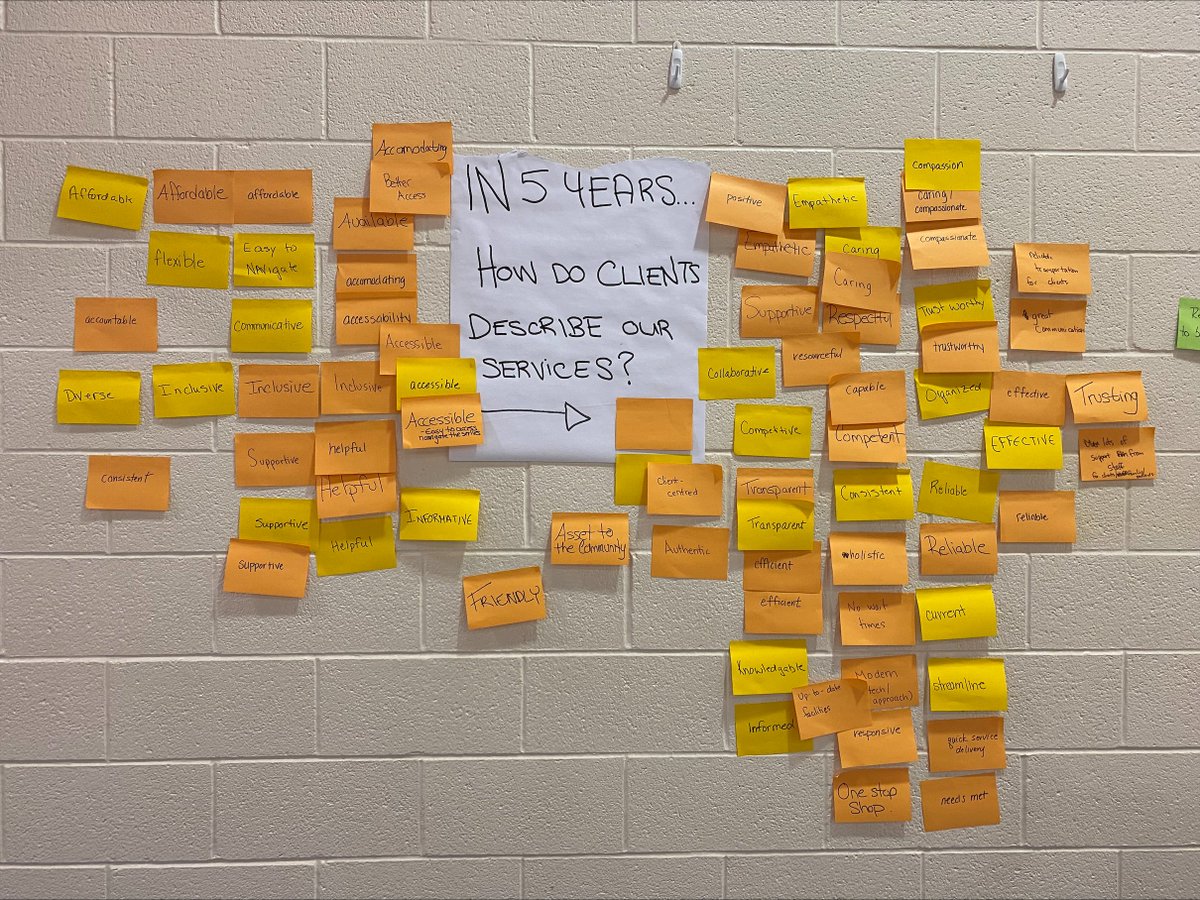 IN 5 YEARS...
HOW DO CLIENTS
DESCRIBE OUR
SERVICES?
Affordable
Affordable
affordable
flexible
Easy to
Navigate
accountable
Communicative
Diverse
Inclusive
Inclusive
Inclusive
Consistent
Supportive
helpful
Helpful
Supportive
Helpful
Supportive
INFORMATIVE
Accomodating
Better
Access
Available
accomodating
accessability
Accessible
accessible
Accessible
- Easy to access
FRIENDLY
Asset to
the Community
client-
centred
Authentic
positive
Empathetic
Empathetic
Caring
Caring
Supportive
Respectful
resourceful
Collaborative
Competitive
Capable
Competent
Transparent
Transparent
efficient
efficient
Consistent
holistic
No wait
times
Knowledgable
Informed
Up to-date
facilities
Modern
tech/
approach)
responsive
One stop
Shop.
Compassion
Caring/
compassionate
Compassionate
Trust worthy
trustworthy
Organized
effective
EFFECTIVE
Reliable
reliable
Reliable
current
streamline
quick service
delivery
needs met
transportation
for clients
great
communication
Trusting
lots of
support
from